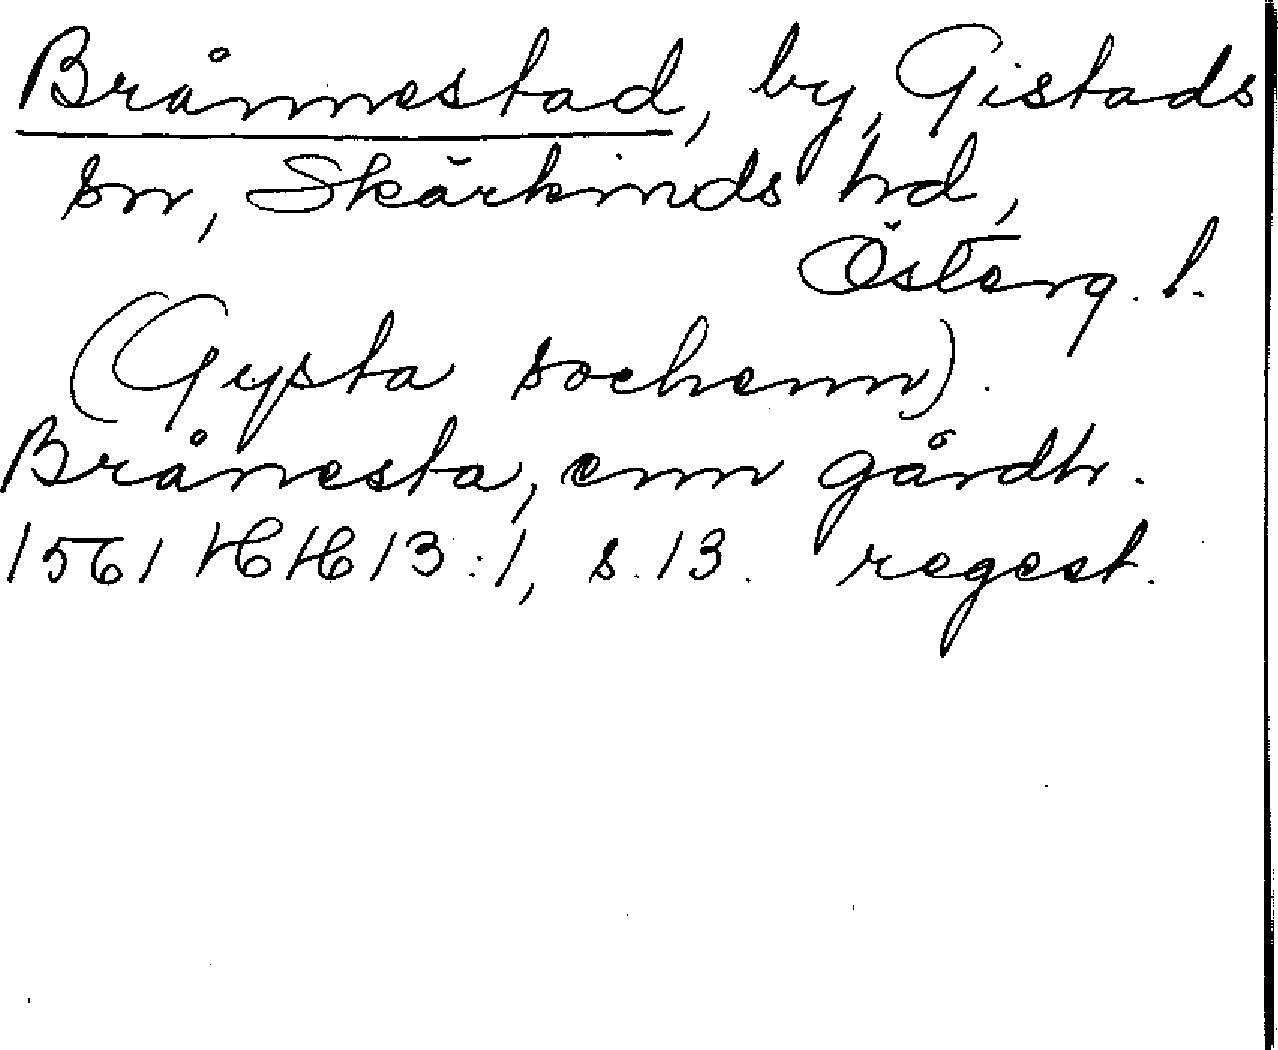 Brånnestad, by, Gistads
sn, Skärkinds hd,
Österg. l.
(Gysta sochenn).
Brånesta, enn gårdh.
1561 HH 13:1, s. 13. regest.